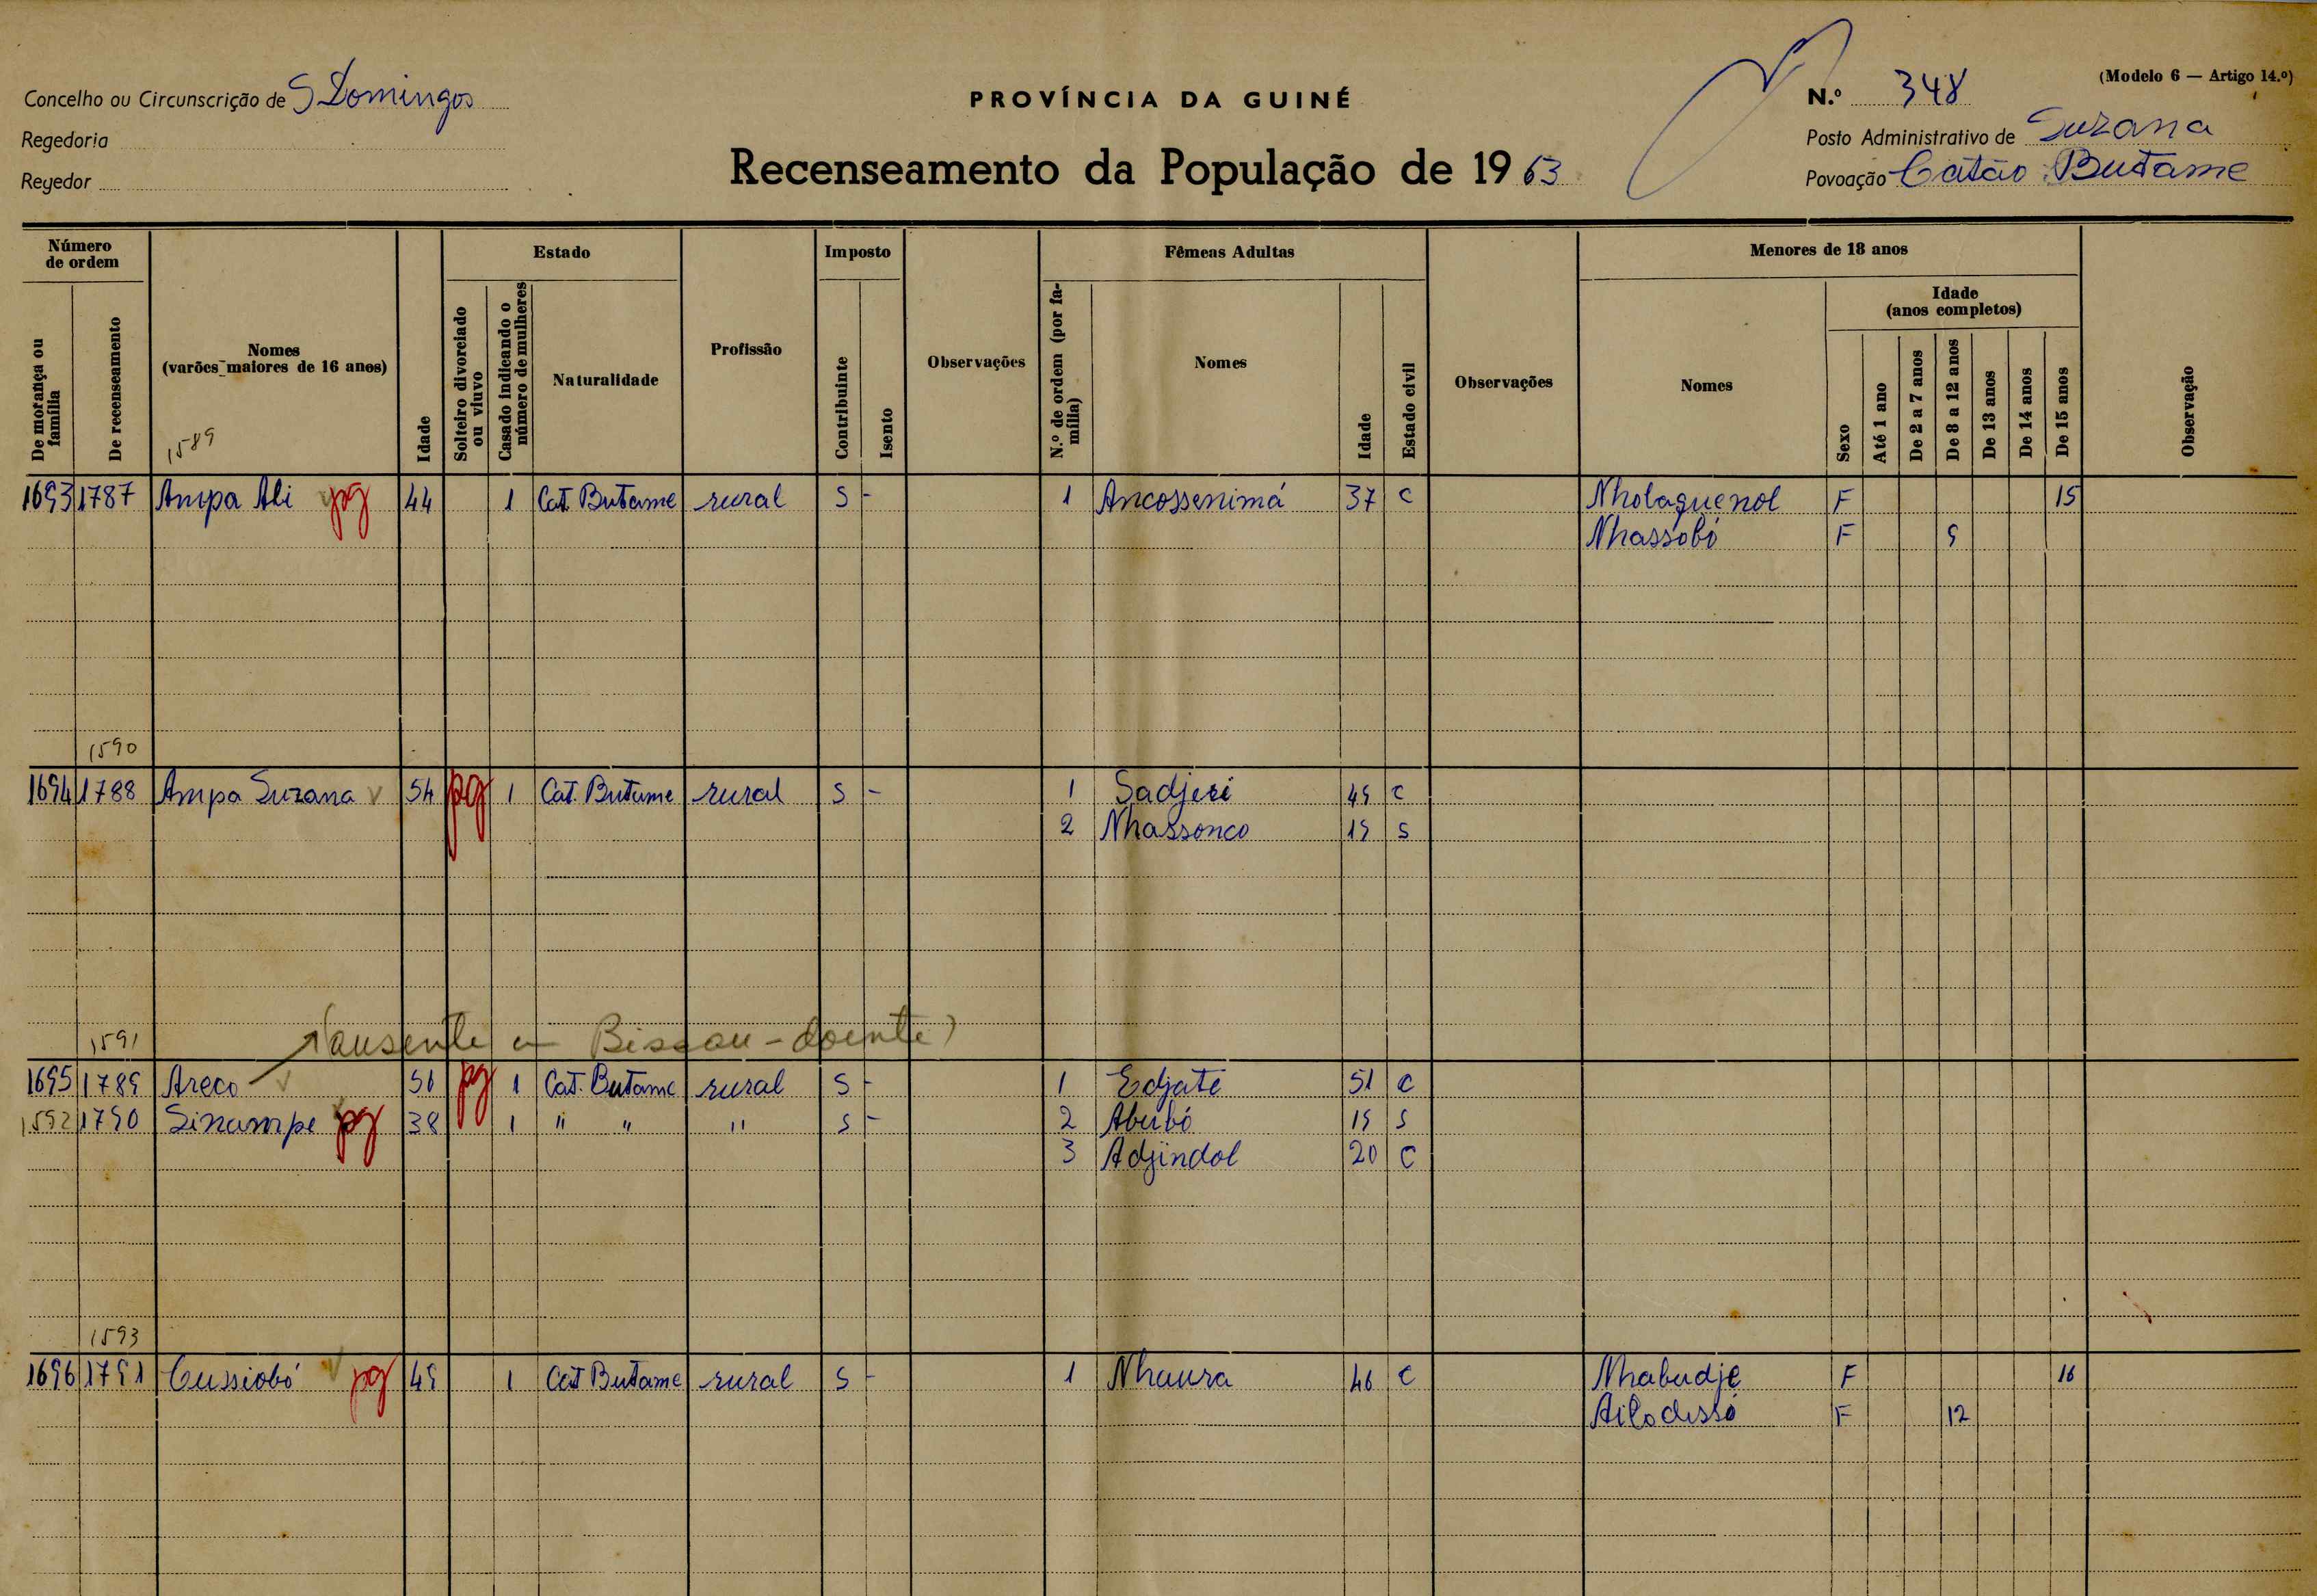 Concelho ou Circunscrição de S Domingos
Regedoria
Regedor
PROVÍNCIA DA GUINÉ
Recenseamento da População de 1963
(Modelo 6 — Artigo 14.º)
N.º 348
Posto Administrativo de Suzana
Povoação Catão Butame
Número de ordem
De morança ou família
De recenseamento
Nomes (varões maiores de 16 anos)
1589
Idade
Estado
Solteiro divorciado ou viuvo
Casado indicando o número de mulheres
Naturalidade
Profissão
Imposto
Contribuinte
Isento
Observações
Fêmeas Adultas
N.º de ordem (por família)
Nomes
Idade
Estado civil
Observações
Menores de 18 anos
Nomes
Sexo
Idade (anos completos)
Até 1 ano
De 2 a 7 anos
De 8 a 12 anos
De 13 anos
De 14 anos
De 15 anos
Observação
1693 1787 Ampa Ali pg 44 1 Cat. Butame rural S - 1 Ancossenimá 37 C Nholaguenol F 15
Nhassobó F 9
1590
1694 1788 Ampa Suzana 54 pg 1 Cat. Butame rural S - 1 Sadjeri 49 C
2 Nhassonco 19 S
1591 (ausente em Bissau - doente)
1695 1789 Areco 56 pg 1 Cat. Butame rural S - 1 Edjate 51 C
1592 1790 Sinampe pg 38 1 " " " S - 2 Abubó 19 S
3 Adjindol 20 C
1593
1696 1791 Cussiobó pg 49 1 Cat Butame rural S - 1 Nhaura 46 C Nhabudje F 16
Ailodissó F 12